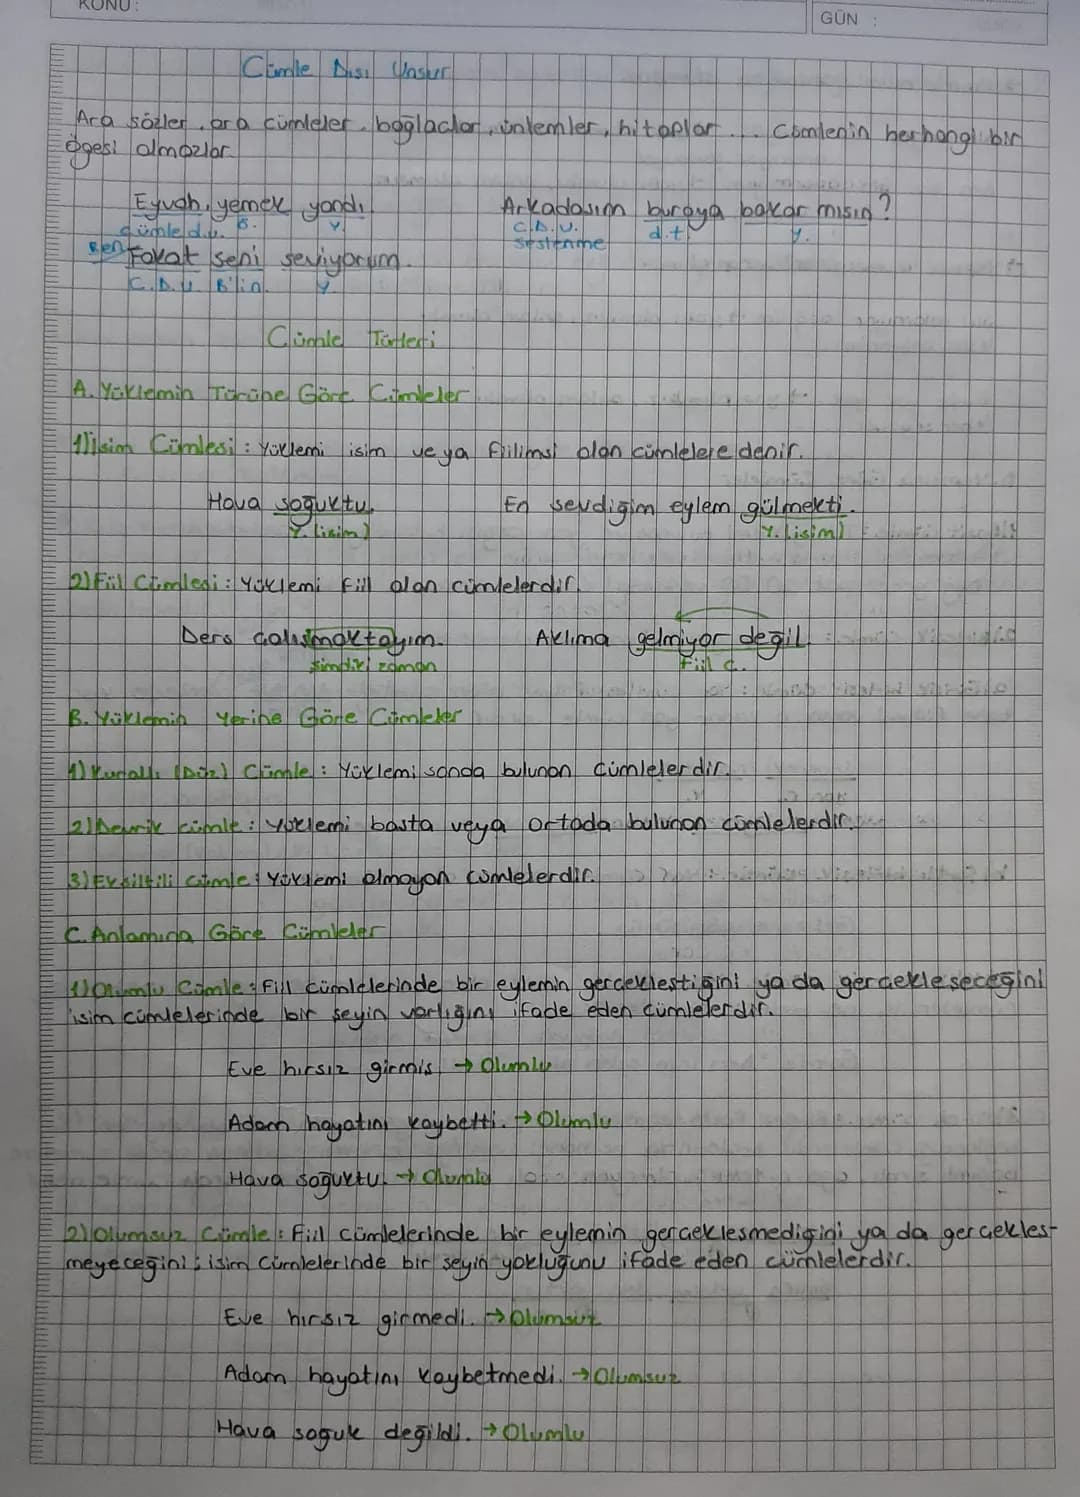 KONU:
GÜN :
Cümle Dışı Unsur
Ara sözler, ara cümleler, bağlaclar, ünlemler, hitaplar... Cümlenin herhangi bir
ögesi olmazlar.
Eyvah, yemek yandı. Arkadasım buraya bakar mısın?
cümle d.u. B. Y. C.D.U. d.t. Y.
seslenme
Ben Fakat seni seviyorum.
C.D.U B'lin. Y.
Cümle Türleri
A. Yüklemin Türüne Göre Cümleler
1) İsim Cümlesi : Yüklemi isim veya fiilimsi olan cümlelere denir.
Hava soğuktu. En sevdiğim eylem gülmekti.
Y. (isim) Y. (isim)
2) Fiil Cümlesi : Yüklemi fiil olan cümlelerdir.
Ders calısmaktayım. Aklıma gelmiyor değil.
şimdiki zaman Fiil c.
B. Yüklemin Yerine Göre Cümleler
1) Kurallı (Düz) Cümle : Yüklemi sonda bulunan cümlelerdir.
2) Devrik cümle : Yüklemi basta veya ortada bulunan cümlelerdir.
3) Eksiltili cümle : Yüklemi olmayan cümlelerdir.
C. Anlamına Göre Cümleler
1) Olumlu Cümle : Fiil cümlelerinde bir eylemin gerceklestiğini ya da gercekleseceğini
isim cümlelerinde bir seyin varlığını ifade eden cümlelerdir.
Eve hırsız girmis → Olumlu
Adam hayatını kaybetti. → Olumlu
Hava soğuktu. → Olumlu
2) Olumsuz Cümle : Fiil cümlelerinde bir eylemin gerceklesmediğini ya da gercekles-
meyeceğini ; isim cümlelerinde bir seyin yokluğunu ifade eden cümlelerdir.
Eve hırsız girmedi. → Olumsuz
Adam hayatını kaybetmedi. → Olumsuz
Hava soguk değildi. → Olumlu